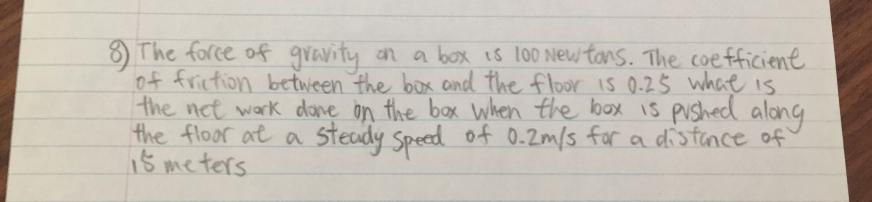 8) The force of gravity on a box is 100 Newtons. The coefficient
of friction between the box and the floor is 0.25 what is
the net work done on the box when the box is pushed along
the floor at a steady speed of 0.2m/s for a distance of
15 meters